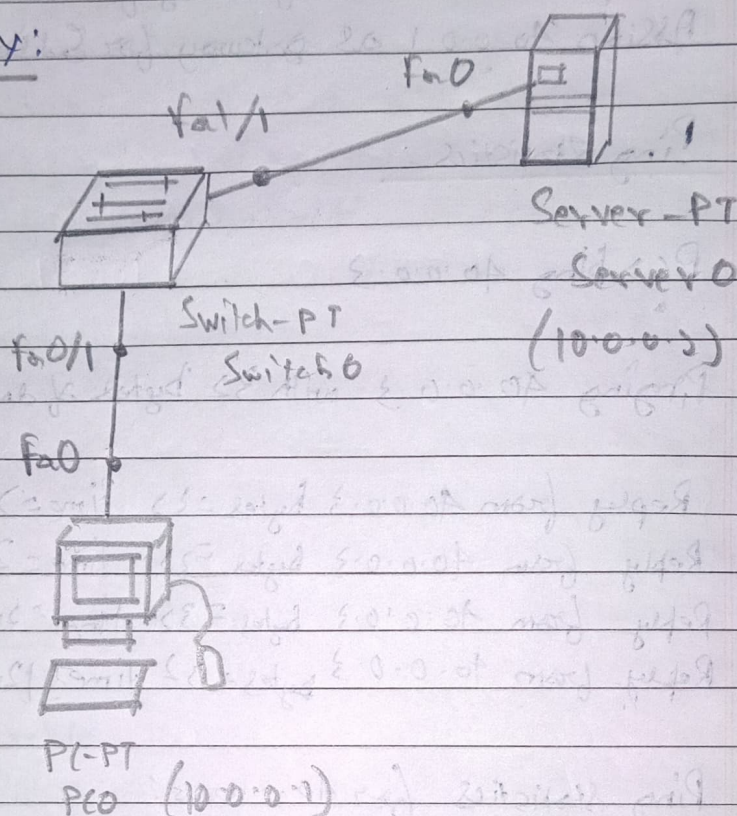 y:
Fa0
Fa1/1
Server-PT
Server0
(10.0.0.2)
Switch-PT
Switch0
Fa0/1
Fa0
PC-PT
PC0 (10.0.0.1)